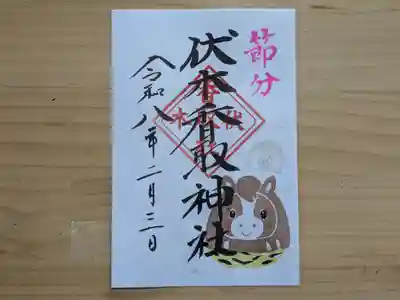 節分
伏木香取神社
令和八年二月三日